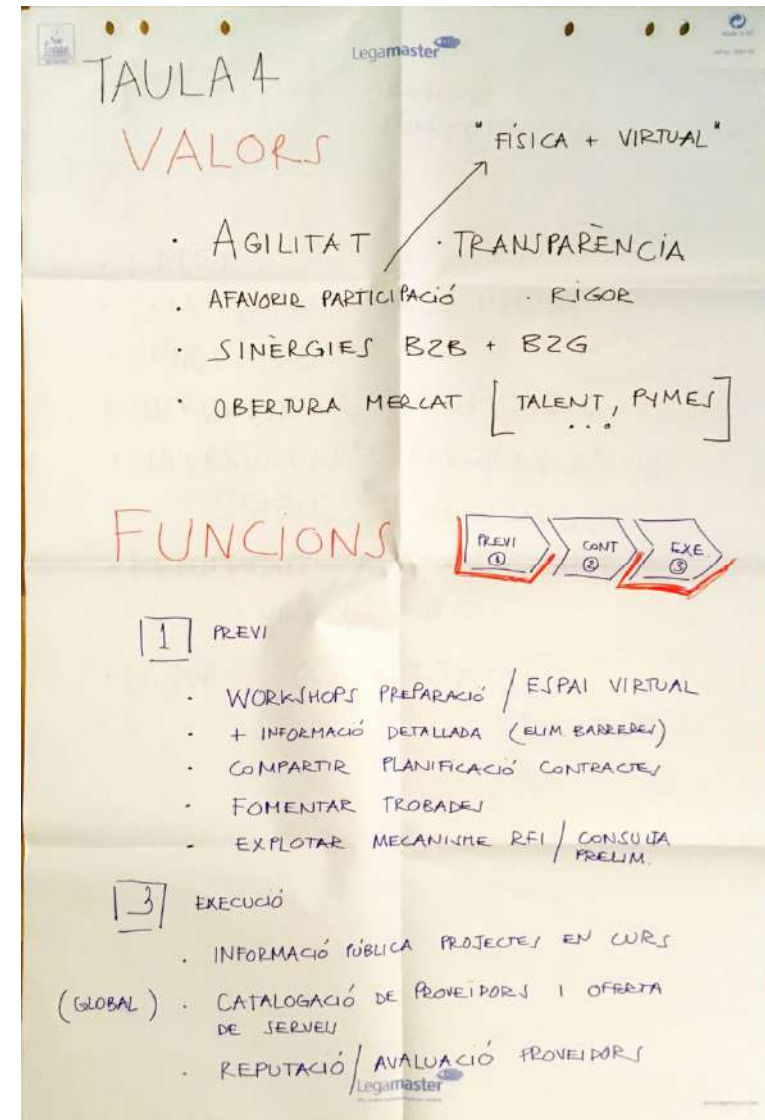 Legamaster
TAULA 4
VALORS
"FÍSICA + VIRTUAL"
· AGILITAT · TRANSPARÈNCIA
· AFAVORIR PARTICIPACIÓ · RIGOR
· SINÈRGIES B2B + B2G
· OBERTURA MERCAT [TALENT, PYMES ...]
FUNCIONS
PREVI 1 CONT 2 EXE. 3
1 PREVI
· WORKSHOPS PREPARACIÓ / ESPAI VIRTUAL
· + INFORMACIÓ DETALLADA (ELIM. BARRERES)
· COMPARTIR PLANIFICACIÓ CONTRACTES
· FOMENTAR TROBADES
· EXPLOTAR MECANISME RFI / CONSULTA
PRELIM.
3 EXECUCIÓ
· INFORMACIÓ PÚBLICA PROJECTES EN CURS
(GLOBAL) · CATALOGACIÓ DE PROVEÏDORS I OFERTA
DE SERVEIS
· REPUTACIÓ / AVALUACIÓ PROVEIDORS
Legamaster